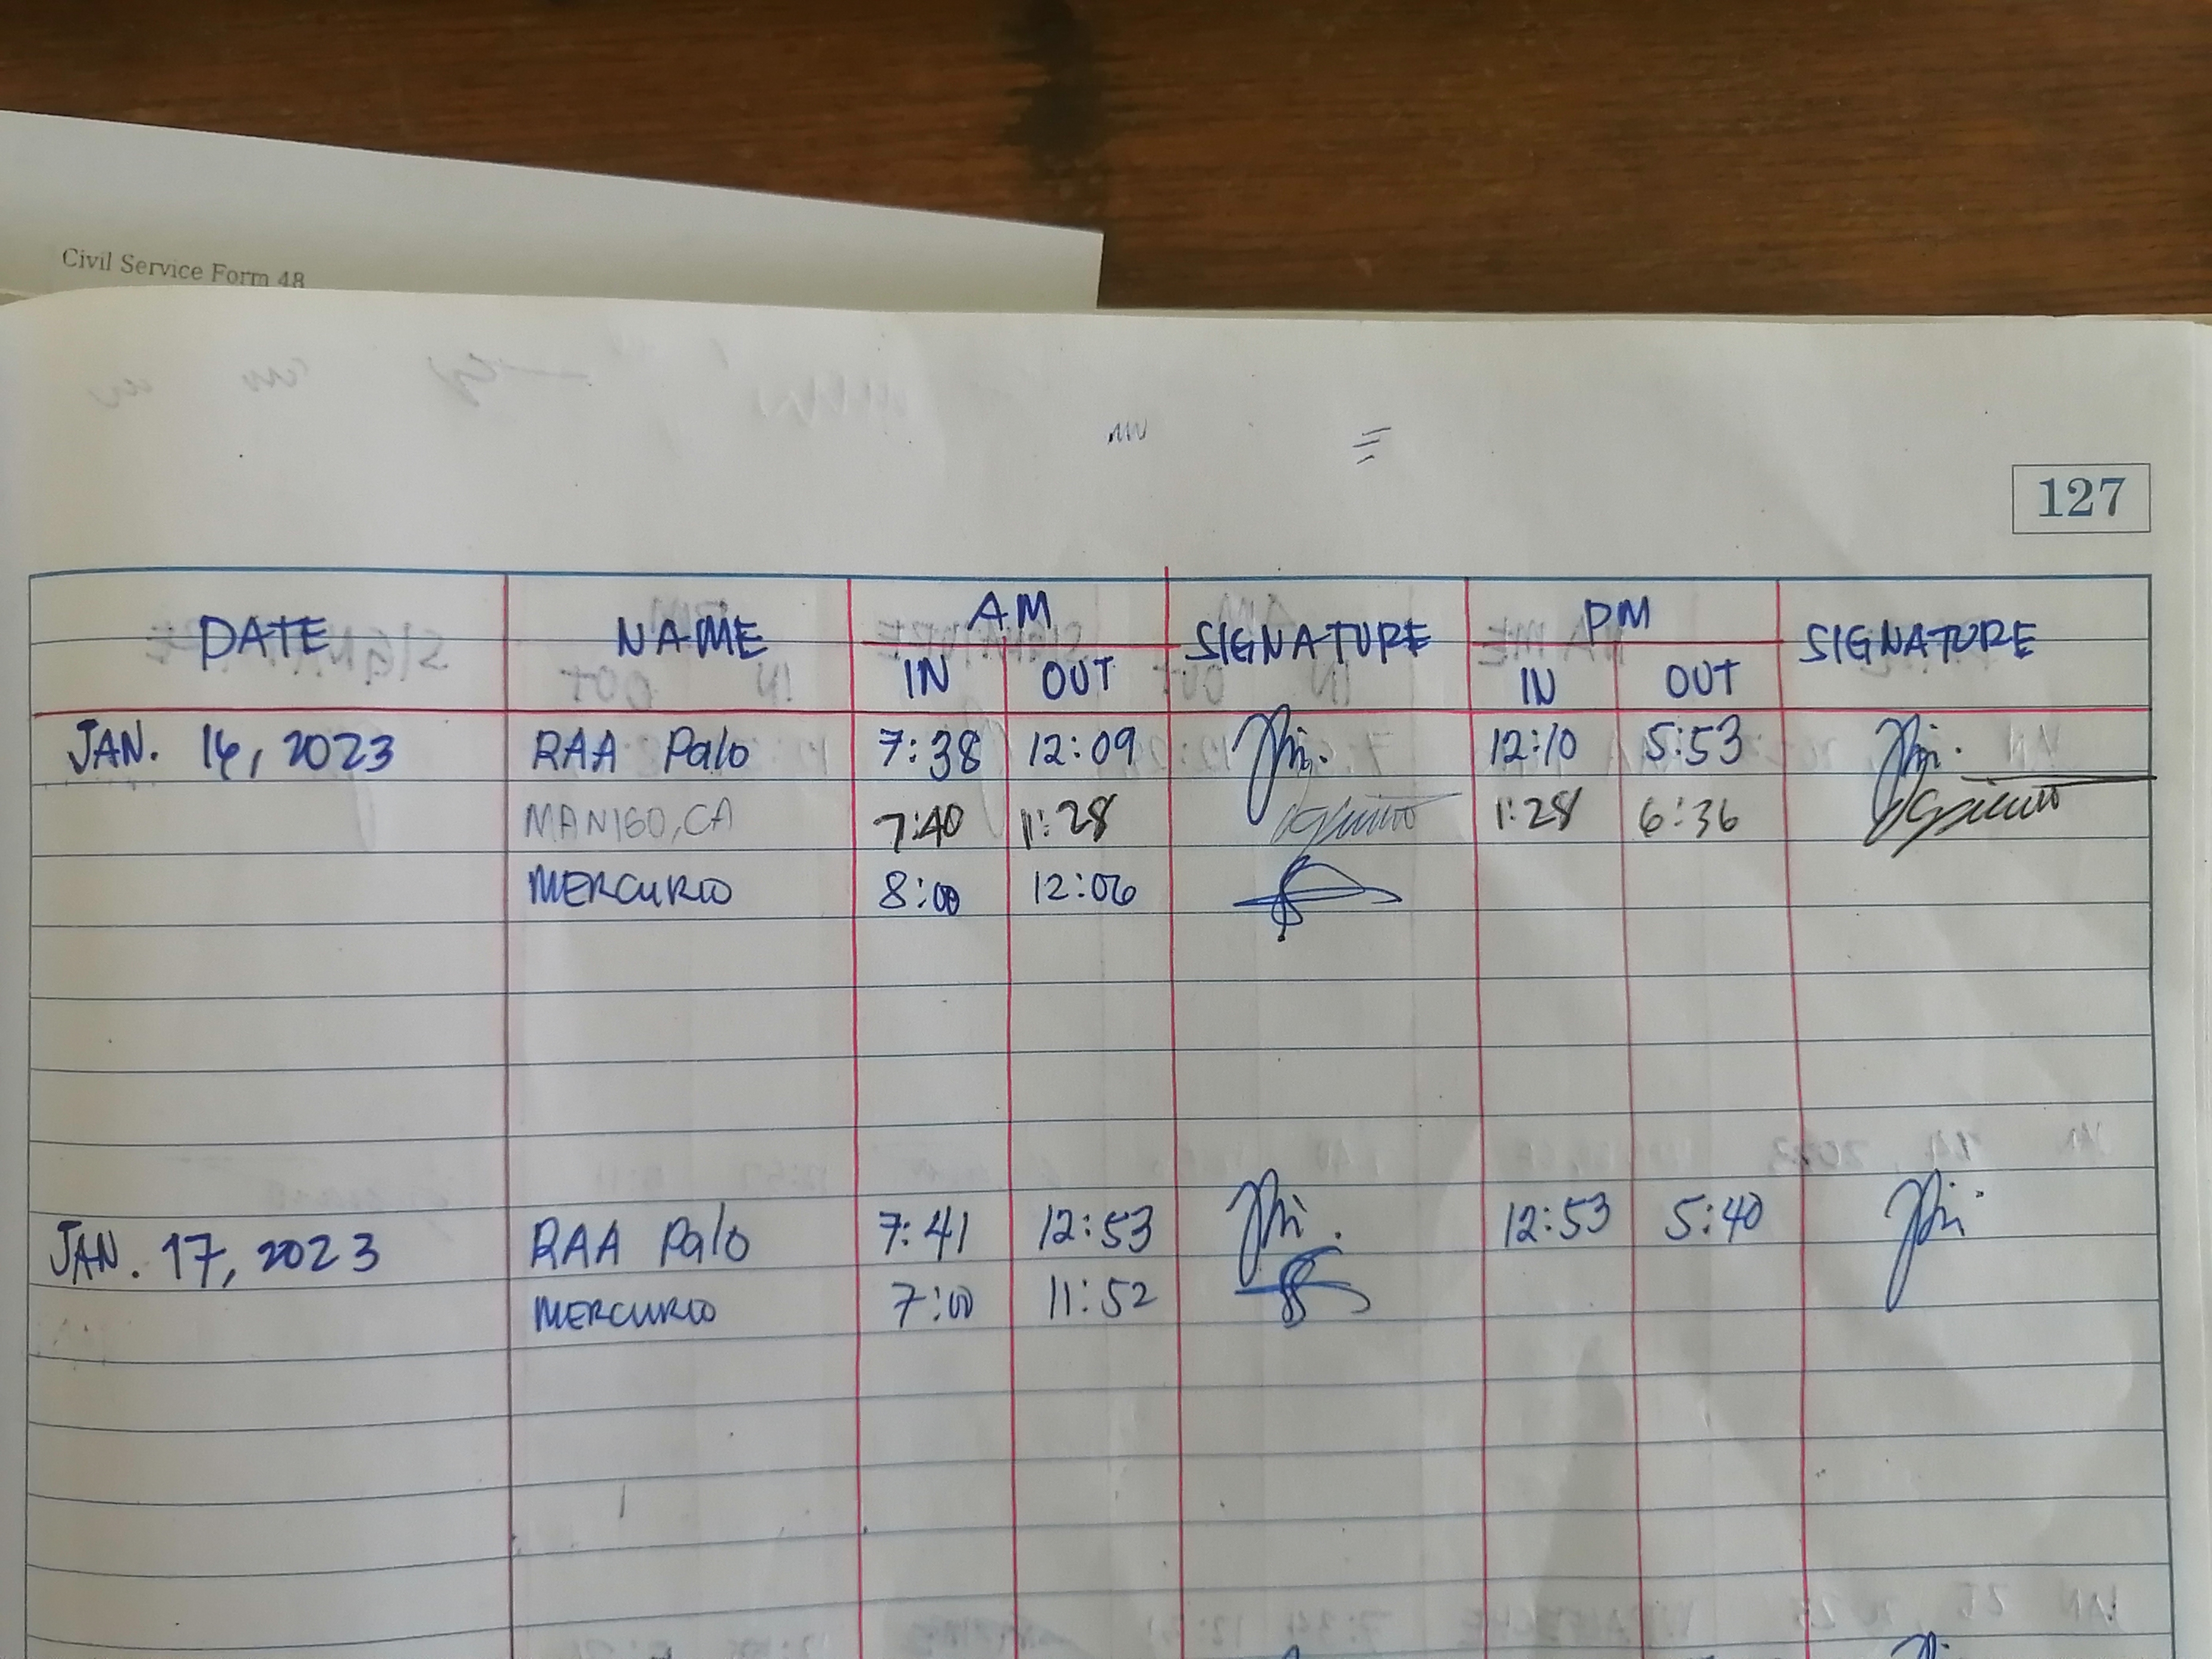 Civil Service Form 48
127
DATE NAME AM SIGNATURE PM SIGNATURE
IN OUT IN OUT
JAN. 16, 2023 RAA Palo 7:38 12:09 12:10 5:53
MANIGO, CA 7:40 1:28 1:28 6:36
MERCURIO 8:00 12:06
JAN. 17, 2023 RAA Palo 7:41 12:53 12:53 5:40
MERCURIO 7:00 11:52